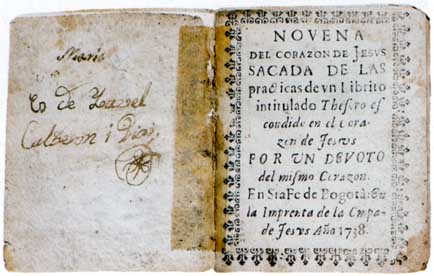 Maria
Es de Isavel
Calderon i Diaz
NOVENA
DEL CORAZON DE JESVS
SACADA DE LAS
practicas de vn Librito
intitulado Thesoro es
condido en el Cora-
zon de Jesvs
POR UN DEVOTO
del mismo Corazon.
En StaFe de Bogotá: En
la Imprenta de la Cmpa-
de Jesvs Año 1738.